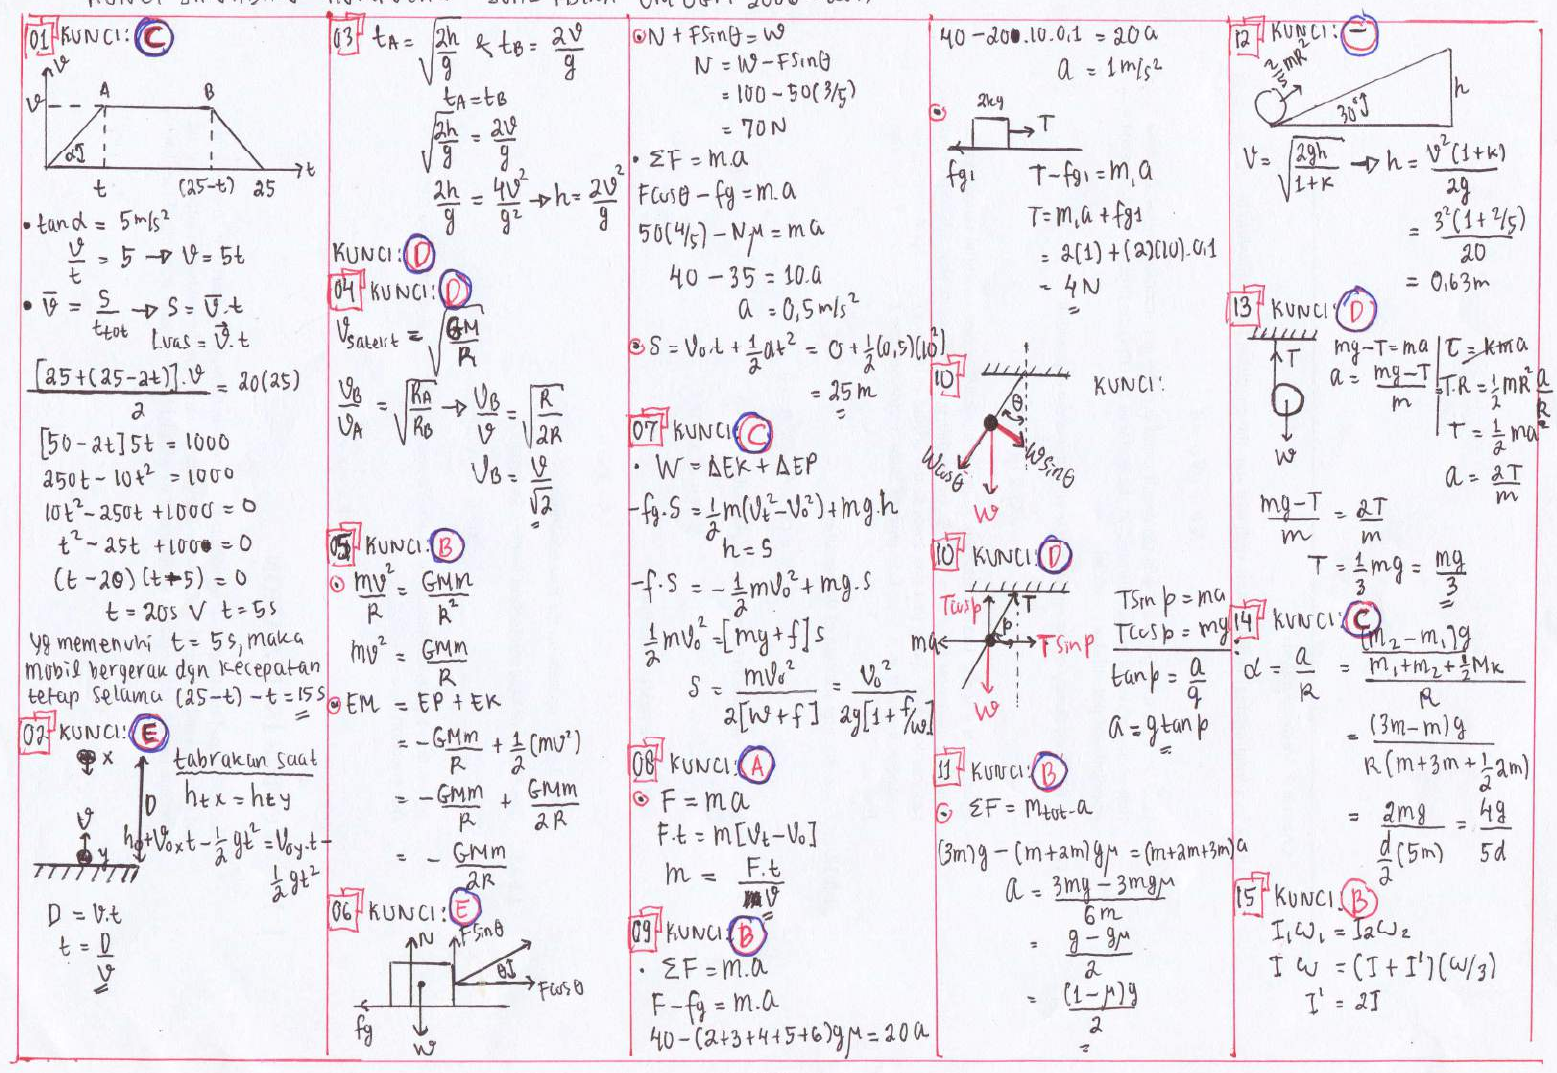 01 KUNCI: C
v
v A B
α
t (25-t) 25 t
• tan α = 5 m/s²
v/t = 5 → v = 5t
• v̄ = S/t_tot → S = v̄.t
Luas = v̄.t
[25+(25-2t)].v / 2 = 20(25)
[50-2t]5t = 1000
250t - 10t² = 1000
10t² - 250t + 1000 = 0
t² - 25t + 100 = 0
(t-20)(t-5) = 0
t = 20s V t = 5s
yg memenuhi t = 5s, maka
mobil bergerak dgn kecepatan
tetap selama (25-t) - t = 15s
02 KUNCI: E
x
tabrakan saat
htx = hty
v D
y
h₀ + V₀xt - 1/2 gt² = V₀y.t -
1/2 gt²
D = v.t
t = D/v
03 tA = √(2h/g) & tB = 2v/g
tA = tB
√(2h/g) = 2v/g
2h/g = 4v²/g² → h = 2v²/g
KUNCI: D
04 KUNCI: D
Vsatelit = √(GM/R)
VB/VA = √(RA/RB) → VB/v = √(R/2R)
VB = v/√2
05 KUNCI: B
mv²/R = GMm/R²
mv² = GMm/R
EM = EP + EK
= -GMm/R + 1/2 (mv²)
= -GMm/R + GMm/2R
= - GMm/2R
06 KUNCI: E
N Fsinθ
θ
Fcosθ
fg
w
N + Fsinθ = w
N = W - Fsinθ
= 100 - 50(3/5)
= 70 N
• ΣF = m.a
Fcosθ - fg = m.a
50(4/5) - Nμ = ma
40 - 35 = 10.a
a = 0,5 m/s²
S = V₀.t + 1/2 at² = 0 + 1/2 (0,5)(10²)
= 25 m
07 KUNCI: C
• W = ΔEK + ΔEP
-fg.S = 1/2 m(Vt² - V₀²) + mg.h
h = S
-f.S = - 1/2 mV₀² + mg.s
1/2 mV₀² = [mg+f]s
S = mV₀² / 2[W+f] = V₀² / 2g[1+f/w]
08 KUNCI: A
F = ma
F.t = m[Vt - V₀]
m = F.t / v
09 KUNCI: B
• ΣF = m.a
F - fg = m.a
40 - (2+3+4+5+6)gμ = 20a
40 - 20.10.0,1 = 20a
a = 1 m/s²
2kg
T
fg1
T - fg1 = m₁a
T = m₁a + fg1
= 2(1) + (2)(10).0,1
= 4 N
10 KUNCI:
θ
Wcosθ Wsinθ
W
10 KUNCI: D
Tcosp T
p
ma Tsinp
W
Tsin p = ma
Tcos p = mg
tan p = a/g
a = g tan p
11 KUNCI: B
ΣF = mtot.a
(3m)g - (m+2m)gμ = (m+2m+3m)a
a = 3mg - 3mgμ / 6m
= g - gμ / 2
= (1-μ)g / 2
12 KUNCI: –
2/5 mR²
30° h
V = √(2gh/1+k) → h = V²(1+k) / 2g
= 3²(1+2/5) / 20
= 0,63 m
13 KUNCI: D
T
W
mg - T = ma
a = mg-T / m
τ = kma
T.R = 1/2 mR² a/R
T = 1/2 ma
a = 2T/m
mg-T / m = 2T/m
T = 1/3 mg = mg/3
14 KUNCI: C
α = a/R = (m₂-m₁)g / m₁+m₂+1/2 Mk / R
= (3m-m)g / R(m+3m+1/2 2m)
= 2mg / d/2 (5m) = 4g / 5d
15 KUNCI. B
I₁ω₁ = I₂ω₂
I ω = (I + I')(ω/3)
I' = 2I